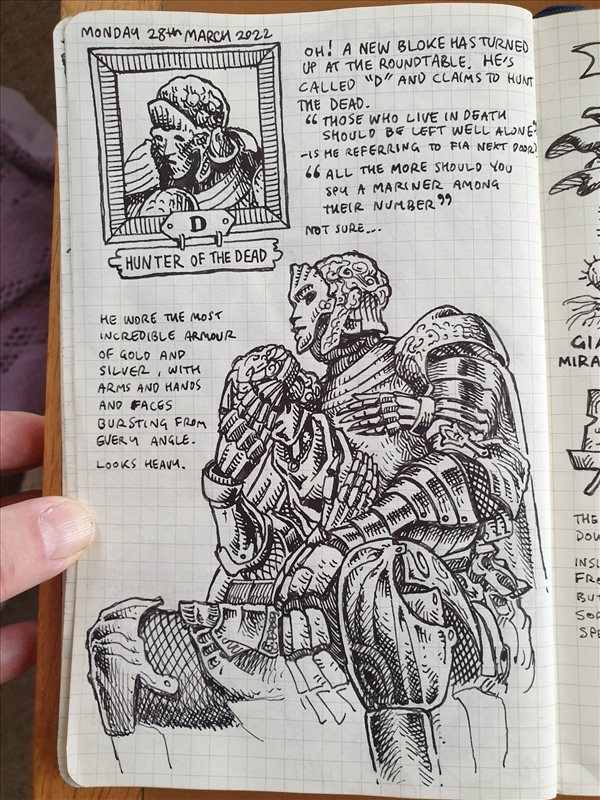 MONDAY 28th MARCH 2022
OH! A NEW BLOKE HAS TURNED
UP AT THE ROUNDTABLE. HE'S
CALLED "D" AND CLAIMS TO HUNT
THE DEAD.
"THOSE WHO LIVE IN DEATH
SHOULD BE LEFT WELL ALONE"
-IS HE REFERRING TO FIA NEXT DOOR?
"ALL THE MORE SHOULD YOU
SPY A MARINER AMONG
THEIR NUMBER"
NOT SURE...
D
HUNTER OF THE DEAD
HE WORE THE MOST
INCREDIBLE ARMOUR
OF GOLD AND
SILVER, WITH
ARMS AND HANDS
AND FACES
BURSTING FROM
EVERY ANGLE.
LOOKS HEAVY.
GIA
MIRA
THE
DOW
INSI
FRO
BUT
SOR
SPE